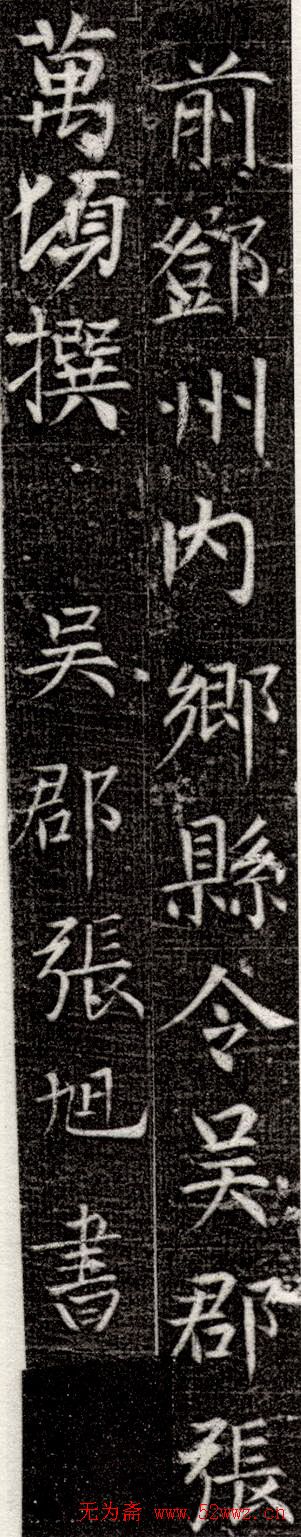 前鄧州内鄉縣令吴郡張
萬頃撰 吴郡張旭書
无为斋 www.52wwz.cn